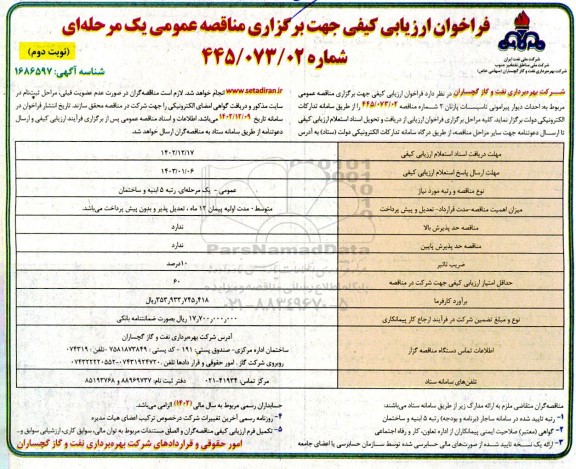 فراخوان ارزیابی کیفی جهت برگزاری مناقصه عمومی یک مرحله‌ای
شماره ۴۴۵/۰۷۳/۰۲
(نوبت دوم)
شناسه آگهی: ۱۶۸۶۵۹۷
شرکت ملی نفت ایران
شرکت ملی مناطق نفتخیز جنوب
شرکت بهره‌برداری نفت و گاز گچساران (سهامی خاص)
شرکت بهره‌برداری نفت و گاز گچساران در نظر دارد فراخوان ارزیابی کیفی جهت برگزاری مناقصه عمومی
مربوط به: احداث دیوار پیرامونی تاسیسات پازنان ۲ شماره مناقصه ۴۴۵/۰۷۳/۰۲ را از طریق سامانه تدارکات
الکترونیکی دولت برگزار نماید. کلیه مراحل برگزاری فراخوان ارزیابی از دریافت و تحویل اسناد استعلام ارزیابی کیفی
تا ارسال دعوتنامه جهت سایر مراحل مناقصه، از طریق درگاه سامانه تدارکات الکترونیکی دولت (ستاد) به آدرس
www.setadiran.ir انجام خواهد شد. لازم است مناقصه‌گران در صورت عدم عضویت قبلی، مراحل ثبت‌نام در
سایت مذکور و دریافت گواهی امضای الکترونیکی را جهت شرکت در مناقصه محقق سازند. تاریخ انتشار فراخوان در
سامانه تاریخ ۱۴۰۲/۱۲/۰۹ می‌باشد. اطلاعات و اسناد مناقصه عمومی پس از برگزاری فرآیند ارزیابی کیفی و ارسال
دعوتنامه از طریق سامانه ستاد به مناقصه‌گران ارسال خواهد شد.
مهلت دریافت اسناد استعلام ارزیابی کیفی ۱۴۰۲/۱۲/۱۷
مهلت ارسال پاسخ استعلام ارزیابی کیفی ۱۴۰۳/۰۱/۰۶
نوع مناقصه و رتبه مورد نیاز عمومی - یک مرحله‌ای، رتبه ۵ ابنیه و ساختمان
میزان اهمیت مناقصه-مدت قرارداد- تعدیل و پیش پرداخت متوسط - مدت اولیه پیمان ۱۲ ماه ، تعدیل پذیر و بدون پیش پرداخت می‌باشد.
مناقصه حد پذیرش بالا ندارد
مناقصه حد پذیرش پایین ندارد
ضریب تاثیر ۱۰درصد
حداقل امتیاز ارزیابی کیفی جهت شرکت در مناقصه ۶۰
برآورد کارفرما ۳۵۳,۹۳۳,۷۴۵,۴۱۸ریال
نوع و مبلغ تضمین شرکت در فرآیند ارجاع کار پیمانکاری ۱۷,۷۰۰,۰۰۰,۰۰۰ ریال بصورت ضمانتنامه بانکی
اطلاعات تماس دستگاه مناقصه گزار
آدرس شرکت بهره‌برداری نفت و گاز گچساران
ساختمان اداره مرکزی- صندوق پستی: ۱۹۱ - کد پستی: ۷۵۸۱۸۷۳۸۴۹ -تلفن: ۰۷۴۳۱۹
روبروی شرکت گاز . امور حقوقی و قرار دادها تلفن ۰۷۴۳۱۹۲۴۷۲۰-۰۷۴۳۲۲۲۲۰۵۵۲
تلفن‌های سامانه ستاد مرکز تماس: ۴۱۹۳۴-۰۲۱ دفتر ثبت نام: ۸۸۹۶۹۷۳۷ و ۸۵۱۹۳۷۶۸
ParsNamadData
پایگاه اطلاع رسانی مناقصه و مزایده
۰۲۱-۸۸۳۴۹۶۷۰-۵
مناقصه‌گران متقاضی ملزم به ارائه مدارک زیر از طریق سامانه ستاد می‌باشند:
۱- رتبه تایید شده در سامانه ساجار (برنامه و بودجه) رتبه ۵ ابنیه و ساختمان
۲- گواهی (معتبر) صلاحیت ایمنی پیمانکاران از اداره تعاون، کار و رفاه اجتماعی
۳- ارائه یک نسخه تایید شده از صورت‌های مالی حسابرسی شده توسط سازمان حسابرسی یا اعضای جامعه
حسابداران رسمی مربوط به سال مالی (۱۴۰۲) الزامی می‌باشد.
۴- روزنامه رسمی آخرین تغییرات شرکت درخصوص ترکیب اعضای هیات مدیره
۵- تکمیل فرم ارزیابی کیفی مناقصه‌گران و الصاق مستندات مربوط به توان مالی، سوابق کاری، ارزشیابی سوابق و...
امور حقوقی و قراردادهای شرکت بهره‌برداری نفت و گاز گچساران